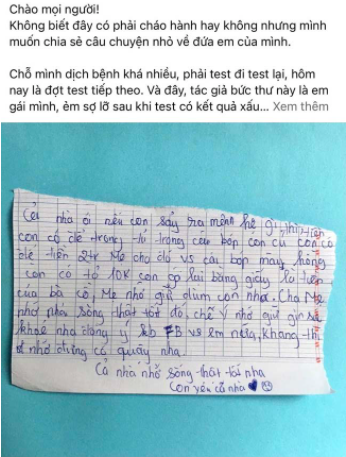 Chào mọi người!
Không biết đây có phải cháo hành hay không nhưng mình
muốn chia sẻ câu chuyện nhỏ về đứa em của mình.
Chỗ mình dịch bệnh khá nhiều, phải test đi test lại, hôm
nay là đợt test tiếp theo. Và đây, tác giả bức thư này là em
gái mình, ẻm sợ lỡ sau khi test có kết quả xấu... Xem thêm
nhà ơi nếu con sảy ra mệnh hệ gì thì tiền
con có để trong trong cái bóp con cũ con có
để tiền 2tr Mẹ cho đó vs cái bọp màu hồng
con có tờ 10k con gói lại bằng giấy là tiền
của bà cố, Mẹ nhớ giữ dùm con nha. Cha Mẹ
nhớ phải sống thật tốt đó, chế Ý nhớ giữ gìn sứ
khoẻ nha đồng ý kb FB vs em nữa, Khang thì
nhớ đừng có quậy nha.
Cả nhà nhớ sống thật tốt nha
Con yêu cả nhà